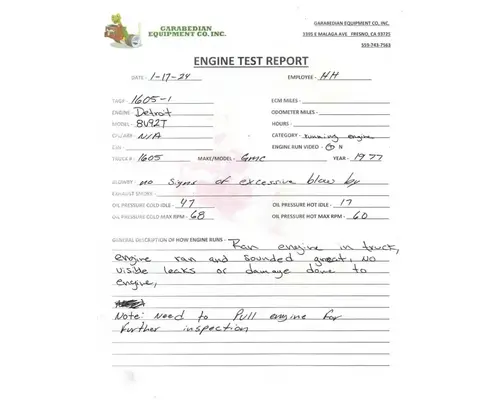 GARABEDIAN
EQUIPMENT CO, INC.
GARABEDIAN EQUIPMENT CO, INC.
3395 E MALAGA AVE FRESNO, CA 93725
559-743-7563
ENGINE TEST REPORT
DATE - 1-17-24 EMPLOYEE - HH
TWD# - 1605-1 ECM MILES -
ENGINE - Detroit ODOMETER MILES -
MODEL - 8V92T HOURS -
CPL/ARR - N/A CATEGORY - running engine
ESN - ENGINE RUN VIDEO - Y N
TRUCK # - 1605 MAKE/MODEL - GMC YEAR - 1977
BLOWBY - no signs of excessive blow by
EXHAUST SMOKE -
OIL PRESSURE COLD IDLE - 47 OIL PRESSURE HOT IDLE - 17
OIL PRESSURE COLD MAX RPM - 68 OIL PRESSURE HOT MAX RPM - 60
GENERAL DESCRIPTION OF HOW ENGINE RUNS - Ran engine in truck,
engine ran and sounded great, no
visible leaks or damage done to
engine,
Note: Need to Pull engine for
further inspection